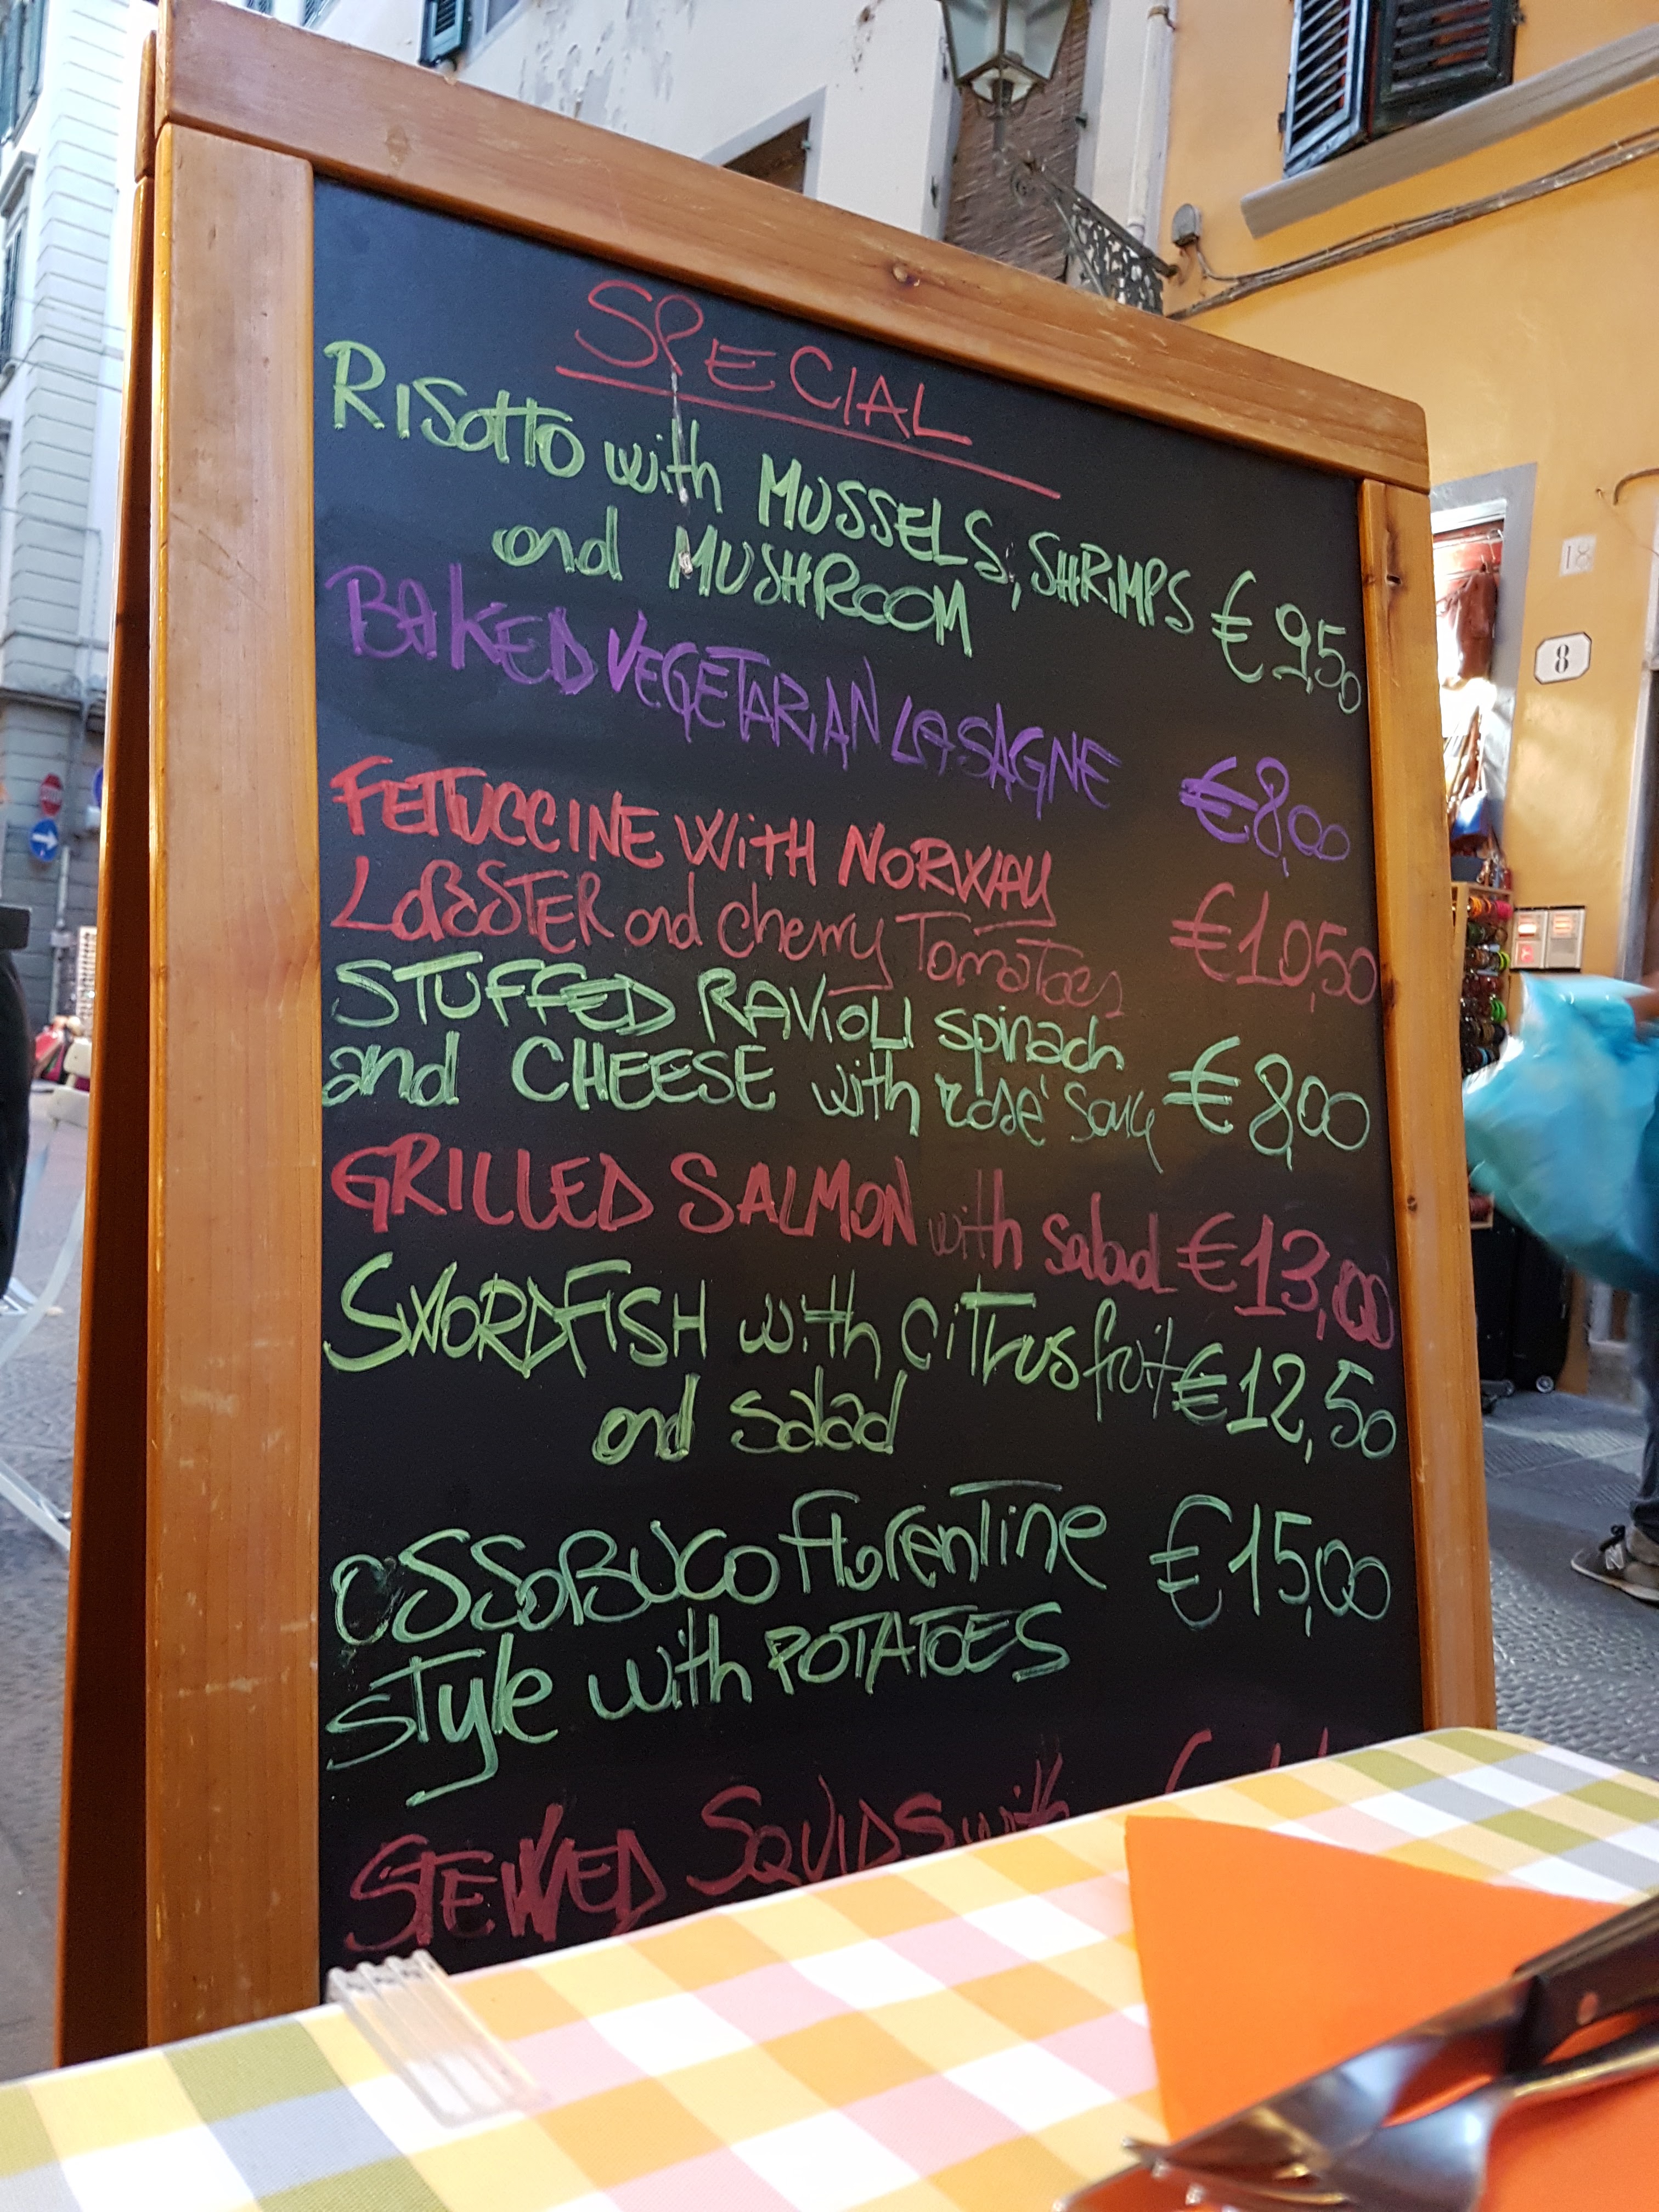 SPECIAL
RISOTTO with MUSSELS, SHRIMPS € 9,50
and MUSHROOM
BAKED VEGETARIAN LASAGNE €8,00
FETTUCCINE WITH NORWAY
LOBSTER and cherry TomaToes €10,50
STUFFED RAVIOLI spinach
and CHEESE with rosé € 8,00
GRILLED SALMON with salad €13,00
SWORDFISH with CITrus fruit €12,50
and salad
OSSOBUCO florentine €15,00
style with POTATOES
STEWED SQUIDS with
18
8